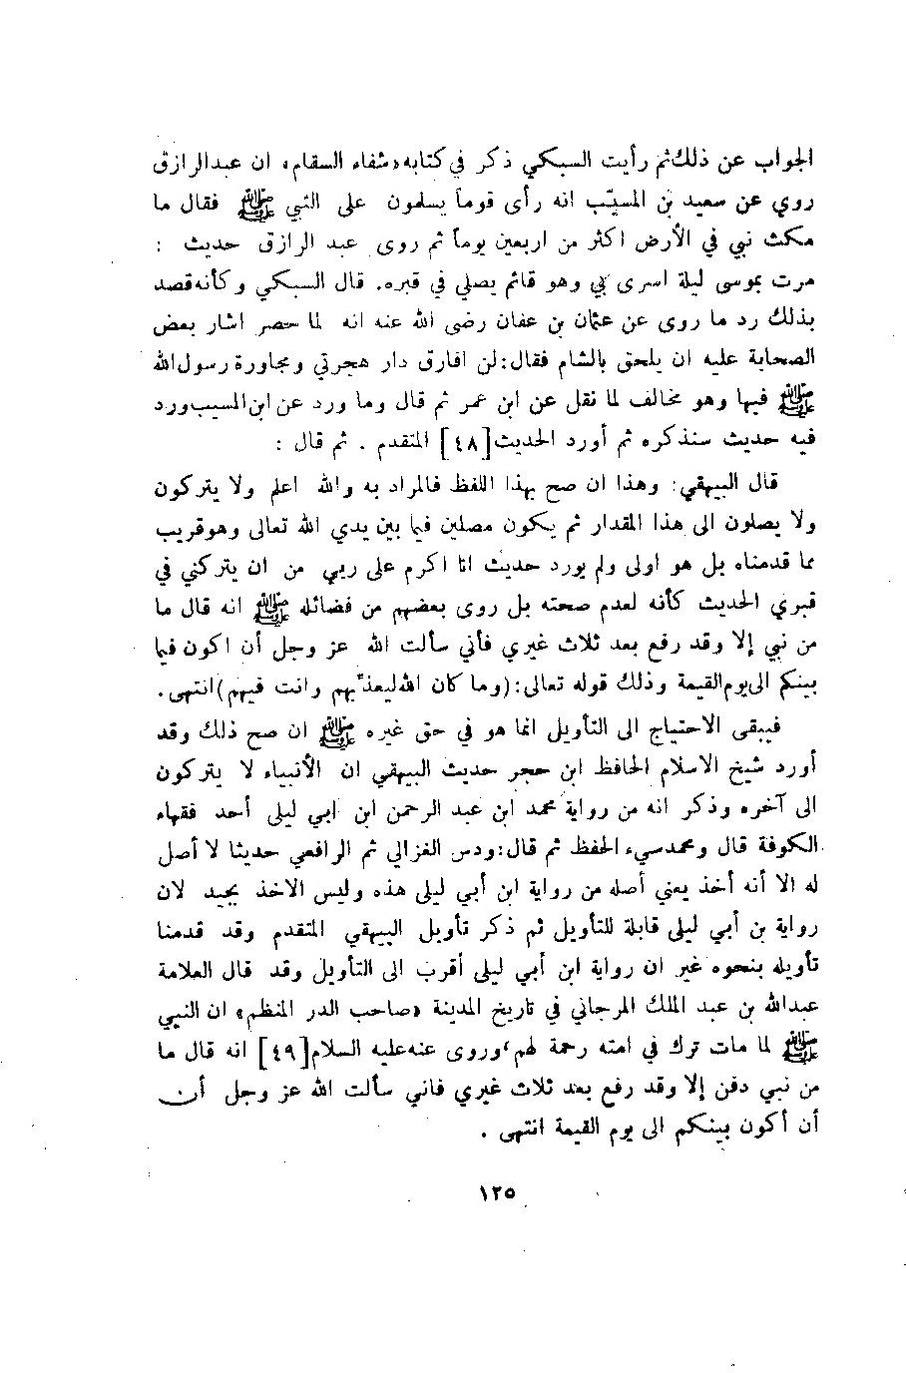 الجواب عن ذلك ثم رأيت السبكي ذكر في كتابه «شفاء السقام» ان عبد الرازق
روي عن سعيد بن المسيّب انه رأى قوماً يسلمون على النبي ﷺ فقال ما
مكث نبي في الأرض اكثر من اربعين يوماً ثم روى عبد الرازق حديث :
مرت بموسى ليلة اسرى بي وهو قائم يصلي في قبره. قال السبكي وكأنه قصد
بذلك رد ما روى عن عثمان بن عفان رضي الله عنه انه لما حصر اشار بعض
الصحابة عليه ان يلحق بالشام فقال: لن افارق دار هجرتي ومجاورة رسول الله
ﷺ فيها وهو مخالف لما نقل عن ابن عمر ثم قال وما ورد عن ابن المسيب ورد
فيه حديث سنذكره ثم أورد الحديث [٤٨] المتقدم . ثم قال :
قال البيهقي: وهذا ان صح بهذا اللفظ فالمراد به والله اعلم ولا يتركون
ولا يصلون الى هذا المقدار ثم يكون مصلين فيما بين يدي الله تعالى وهو قريب
مما قدمناه بل هو اولى ولم يورد حديث انا اكرم على ربي من ان يتركني في
قبري الحديث كأنه لعدم صحته بل روى بعضهم من فضائله ﷺ انه قال ما
من نبي إلا وقد رفع بعد ثلاث غيري فأني سألت الله عز وجل أن اكون فيما
بينكم الى يوم القيمة وذلك قوله تعالى: (وما كان الله ليعذبهم وانت فيهم) انتهى.
فيبقى الاحتياج الى التأويل انما هو في حق غيره ﷺ ان صح ذلك وقد
أورد شيخ الاسلام الحافظ ابن حجر حديث البيهقي ان الأنبياء لا يتركون
الى آخره وذكر انه من رواية محمد ابن عبد الرحمن ابن ابي ليلى أحد فقهاء
الكوفة قال ومحمد سيء الحفظ ثم قال: ودس الغزالي ثم الرافعي حديثا لا أصل
له الا أنه أخذ يعني أصله من رواية ابن أبي ليلى هذه وليس الاخذ بجيد لان
رواية بن أبي ليلى قابلة للتأويل ثم ذكر تأويل البيهقي المتقدم وقد قدمنا
تأويله بنحوه غير ان رواية ابن أبي ليلى أقرب الى التأويل وقد قال العلامة
عبدالله بن عبد الملك المرجاني في تاريخ المدينة «صاحب الدر المنظم» ان النبي
ﷺ لما مات ترك في امته رحمة لهم، وروى عنه عليه السلام [٤٩] انه قال ما
من نبي دفن إلا وقد رفع بعد ثلاث غيري فاني سألت الله عز وجل أن
أن أكون بينكم الى يوم القيمة انتهى .
١٢٥